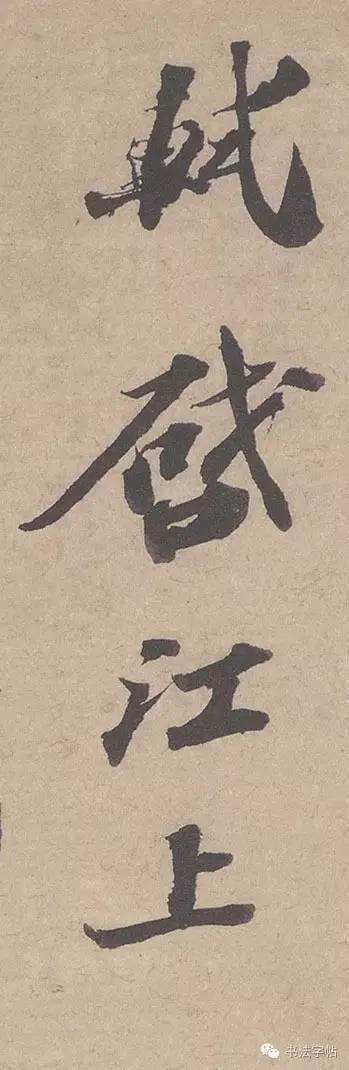 軾啓江上
书法字帖